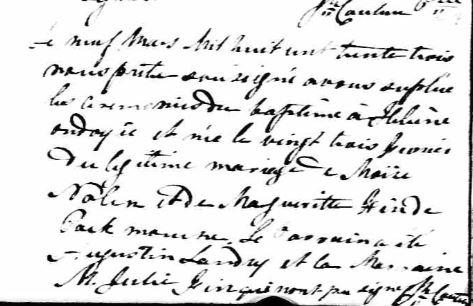 Le neuf Mars mil huit cent trente trois
nous prêtre soussigné avons suplée
les ceremonies du baptême à Helène
ondoyée et née le vingt trois Janvier
du légitime mariage de Moïse
et de Marguerite
Le Parrain a été
Augustin Landry et la Marraine
M. Julie qui n'ont pu signer